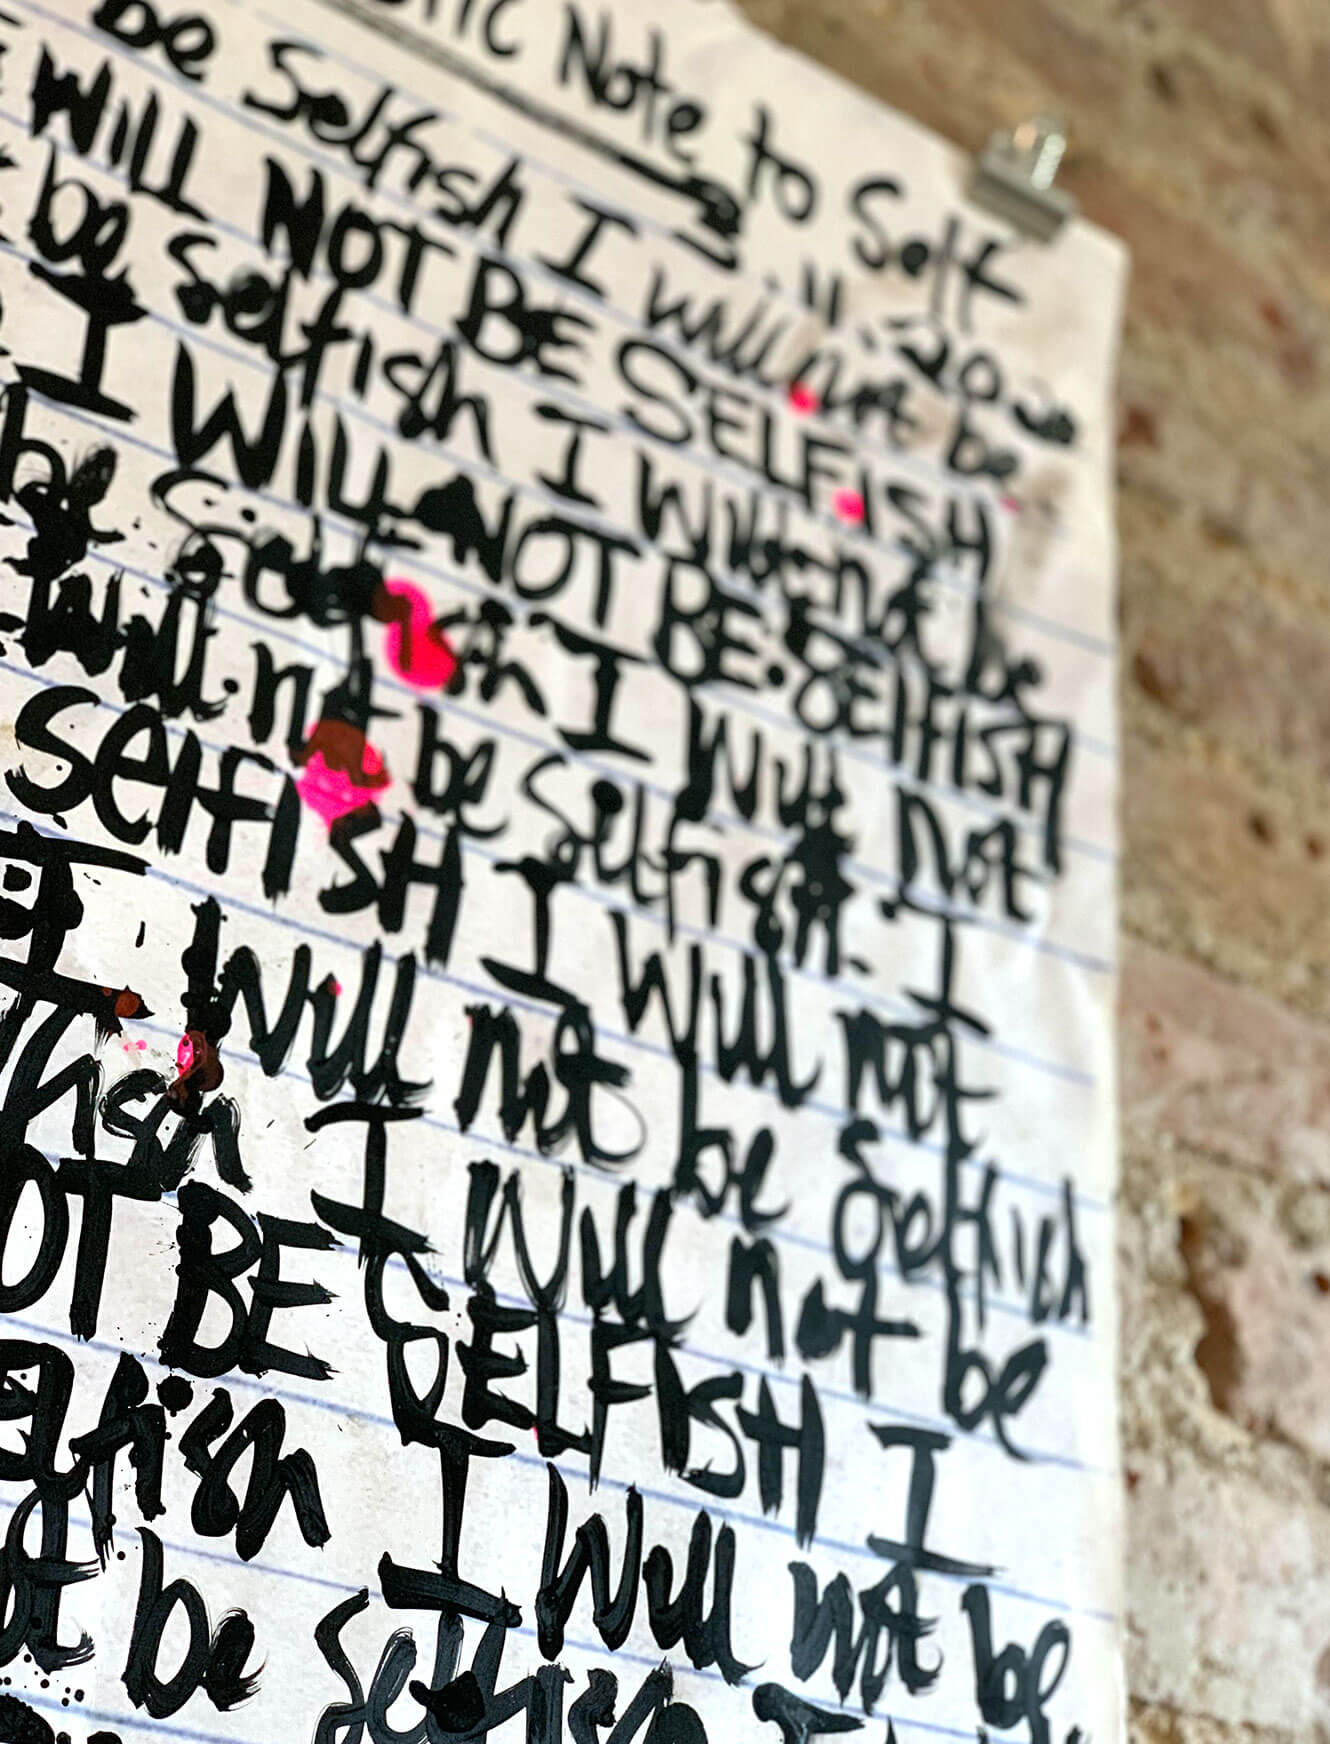 Note to Self
2020
be Selfish I will not be
WILL NOT BE SELFISH
be selfish I will not be
I WILL NOT BE SELFISH
be Selfish I will not
will not be Selfish. I
SELFISH I Will not
I will not be Selfish
I will not be
NOT BE SELFISH I
selfish I will not be
not be selfish I